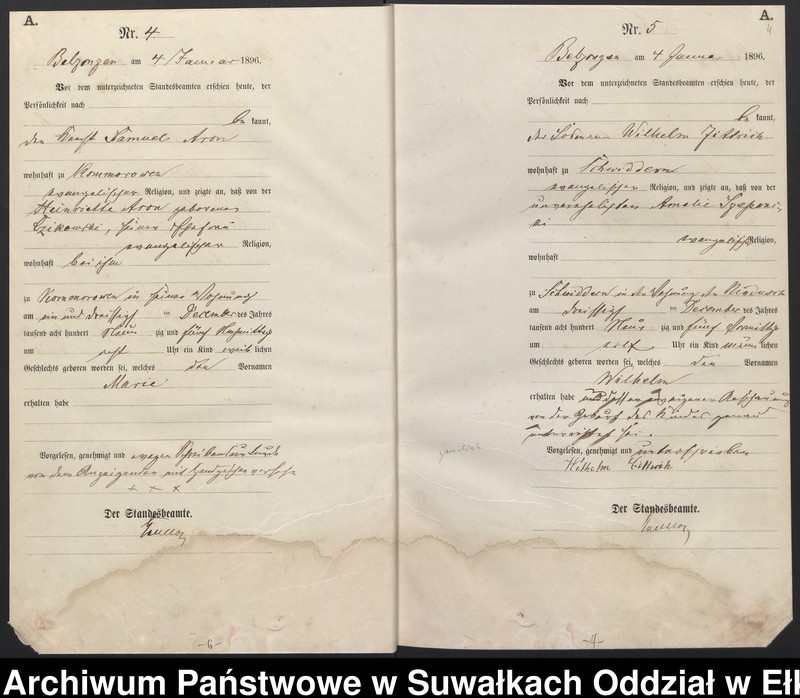 A.
Nr. 4
Belzonzen am 4 Januar 1896.
Vor dem unterzeichneten Standesbeamten erschien heute, der
Persönlichkeit nach
be kannt,
Samuel Aron
wohnhaft zu Kommorowen
evangelischer Religion, und zeigte an, daß von der
Henriette Aron geborenen
Czikowski, seiner Ehefrau
evangelischer Religion,
wohnhaft bei ihm
zu Kommorowen in seiner Wohnung
am ein und dreissigsten Dezember des Jahres
tausend acht hundert Neun zig und fünf Nachmittags
um acht Uhr ein Kind weib lichen
Geschlechts geboren worden sei, welches den Vornamen
Marie
erhalten habe
Vorgelesen, genehmigt und wegen Schreibensunkunde
von dem Anzeigenden mit Handzeichen versehen
+ + x
Der Standesbeamte.
-6-
A.
4
Nr. 5
Belzonzen am 4 Januar 1896.
Vor dem unterzeichneten Standesbeamten erschien heute, der
Persönlichkeit nach
be kannt,
der Wilhelm Zittrich
wohnhaft zu Schwiddern
evangelischer Religion, und zeigte an, daß von der
unverehelichten Amalie Szepans-
ki
evangelischer Religion,
wohnhaft
zu Schwiddern in der Wohnung des
am dreissigsten Dezember des Jahres
tausend acht hundert Neun zig und fünf Vormittags
um elf Uhr ein Kind männ lichen
Geschlechts geboren worden sei, welches den Vornamen
Wilhelm
erhalten habe und dass er aus eigener
von der Geburt des Kindes genau
unterrichtet sei.
Vorgelesen, genehmigt und unterschrieben
Wilhelm Zittrich
Der Standesbeamte.
-4-
Archiwum Państwowe w Suwałkach Oddział w Eł